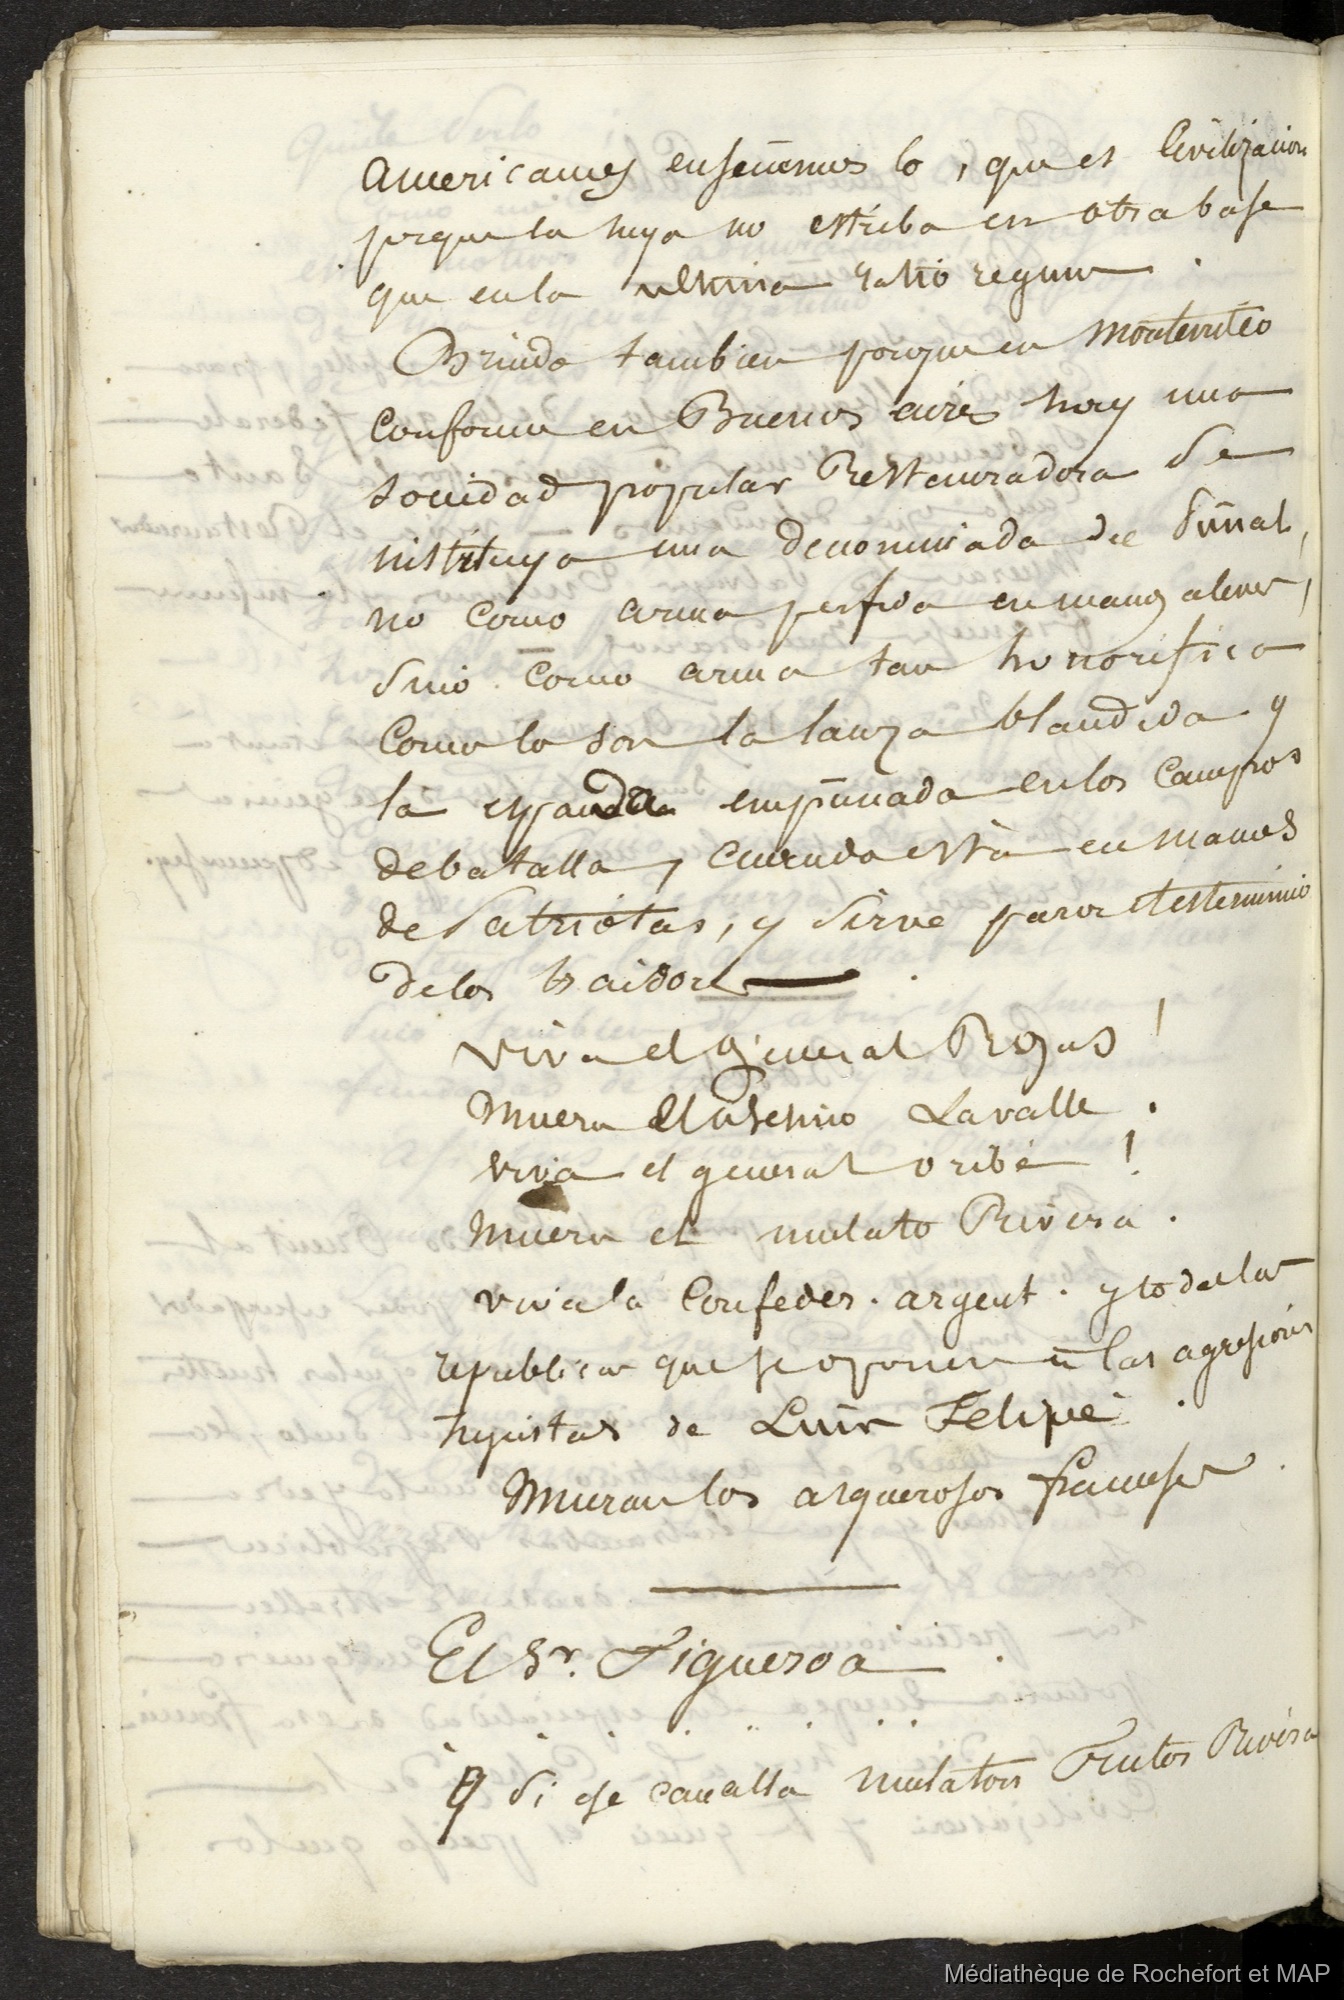 americanos enseñemos lo, que es Civilizacion
porque la suya no estriba en otra base
que en la ultima ratio regum.
Brindo tambien porque en Montevideo
conforme en Buenos aires hay una
sociedad popular Restauradora se
instituya una denominada de Puñal,
no como arma perfida en manos aleves,
sino como arma tan honorifica
como lo son la lanza blandida y
la espada empuñada en los campos
de batalla, cuando está en manos
de Patriotas, y sirve para
de los traidores
Viva el General Rosas!
Muera el asesino Lavalle.
viva el general oribe!
Muera el mulato Rivera.
viva la Confeder. argent. y todas las
republicas que se oponen a las agresiones
injustas de Luis Felipe.
Mueran los asquerosos franceses.
El Sr. Figueroa.
. . . . . . . .
Y si ese canalla mulaton Frutos Rivera
Médiathèque de Rochefort et MAP